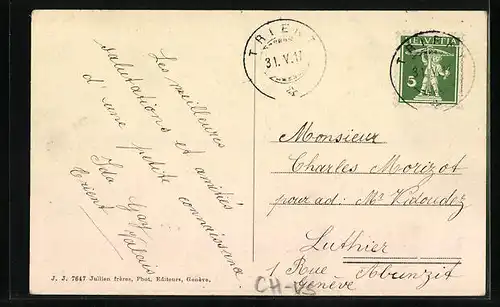 TRIENT
31.V.17
HELVETIA
5
Les meilleures
salutations et amitiés
d'une petite connaissance.
Ida Gay
Trient Valais
Monsieur
Charles Morizot
pour ad: Mr Vidoudez
Luthier
1 Rue Abauzit
Genève
J. J. 7647 Jullien frères, Phot. Editeurs, Genève.
CH-VS